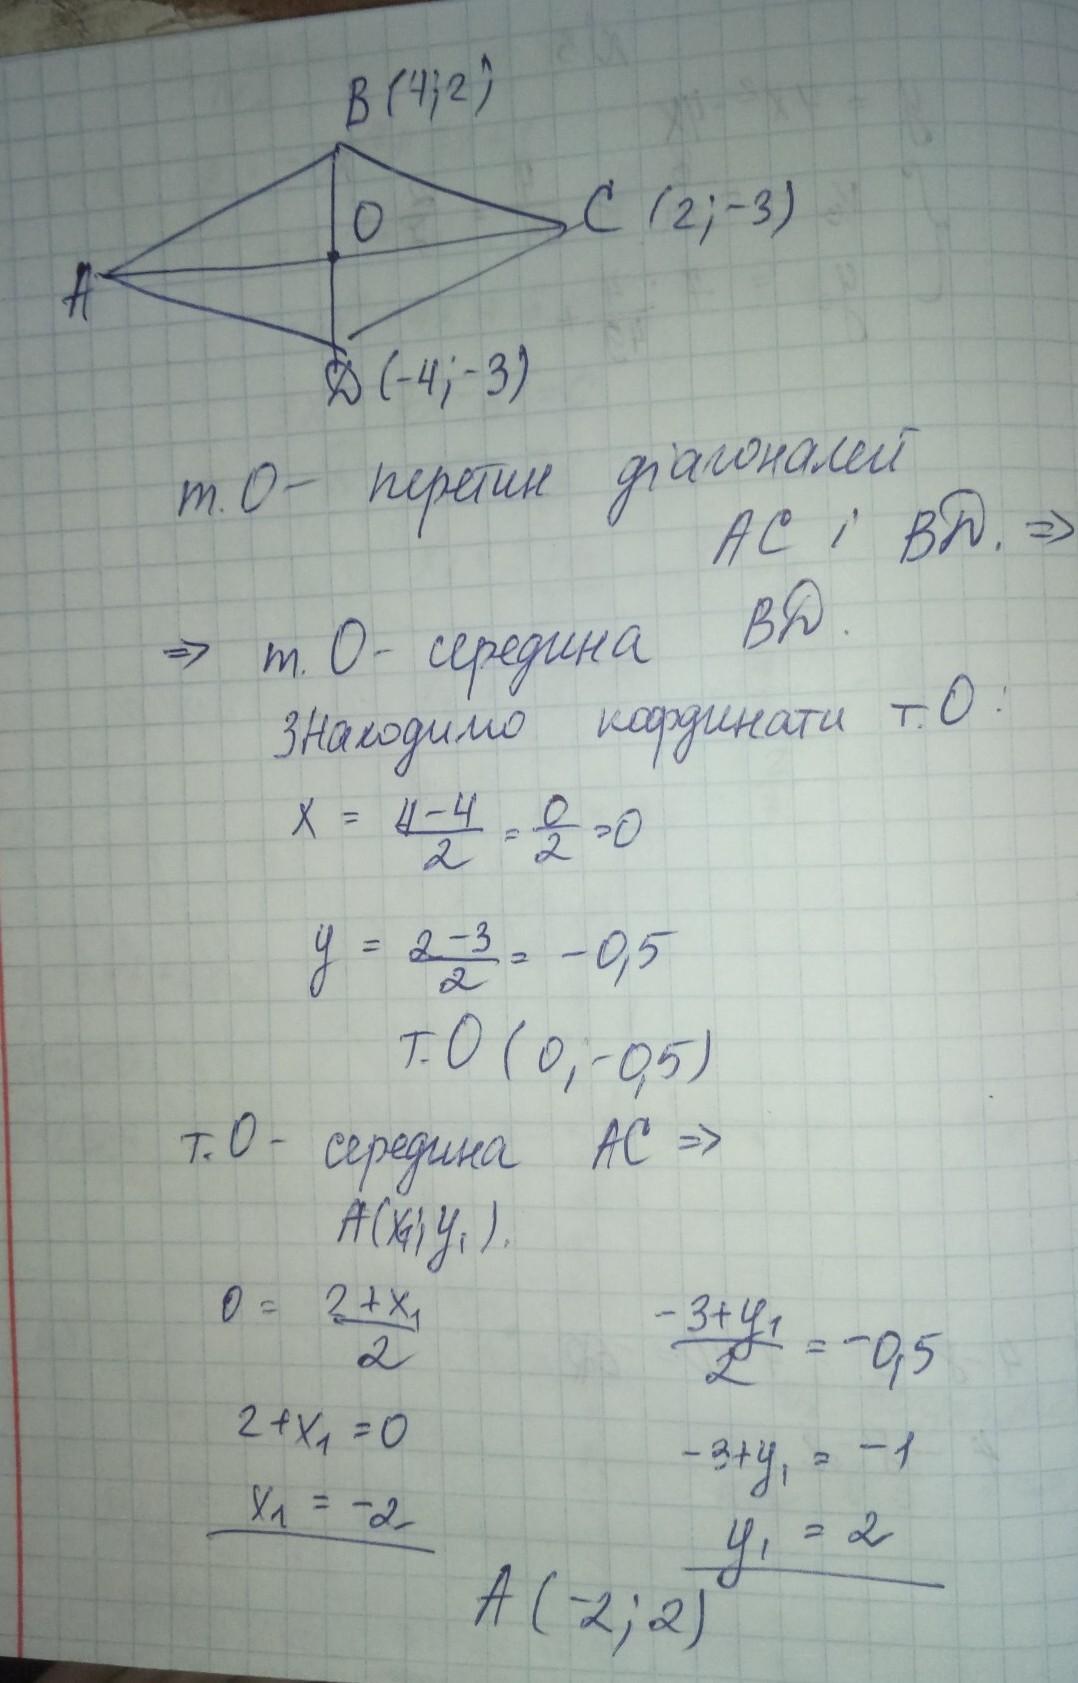 B (4; 2)
O
C (2; -3)
A
D (-4; -3)
т. O - перетин діагоналей
AC і BD. ⇒
⇒ т. O - середина BD.
Знаходимо координати т. O:
x = (4-4)/2 = 0/2 = 0
y = (2-3)/2 = -0,5
т. O (0; -0,5)
т. O - середина AC ⇒
A(x₁; y₁).
0 = (2+x₁)/2
(-3+y₁)/2 = -0,5
2+x₁ = 0
-3+y₁ = -1
x₁ = -2
y₁ = 2
A (-2; 2)